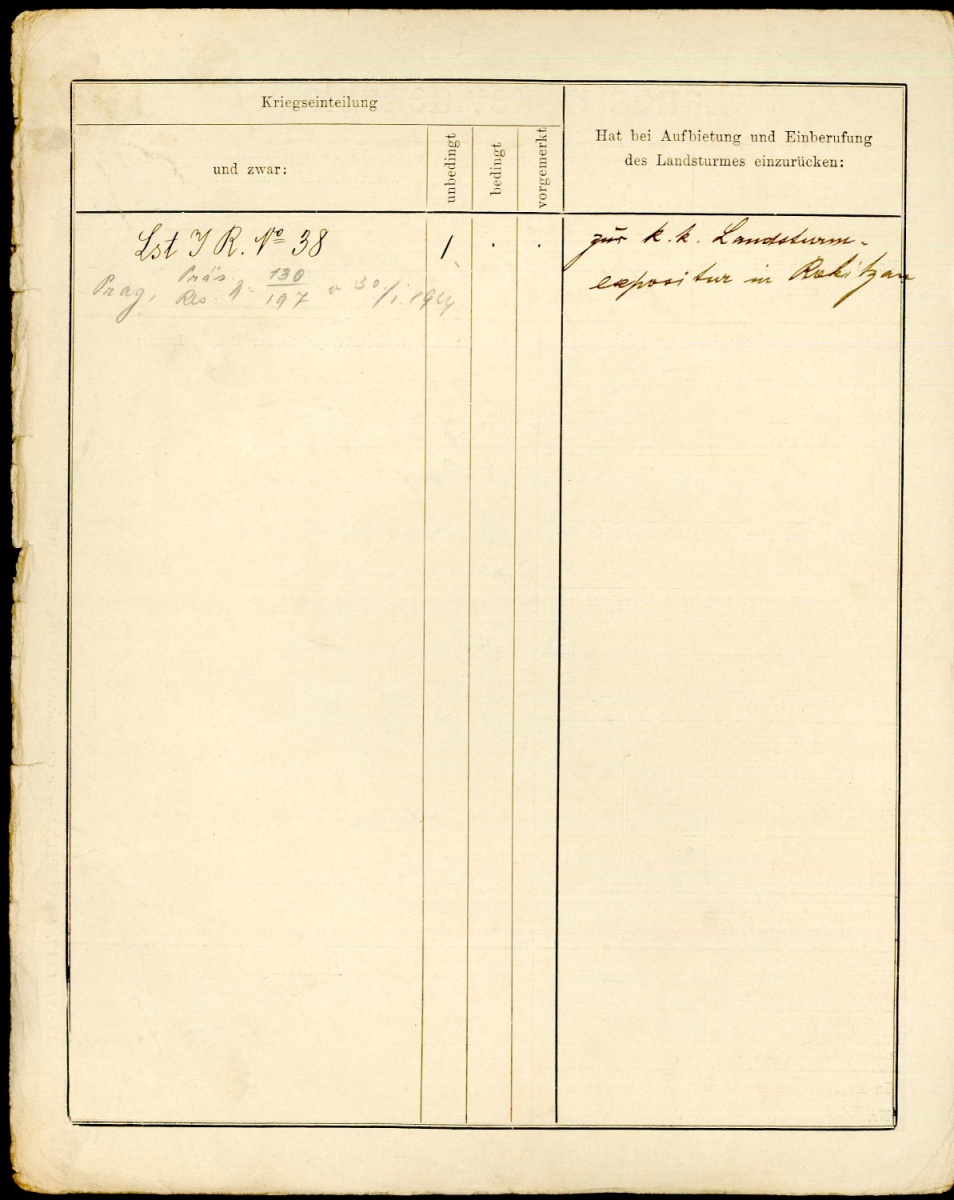 Kriegseinteilung
und zwar:
unbedingt
bedingt
vorgemerkt
Hat bei Aufbietung und Einberufung
des Landsturmes einzurücken:
Lst I R. No 38
1 . .
zur k. k. Landsturm-
expositur in Rokitzan
Präs. 130
Prag, Res. N. 197 v 30/I. 19